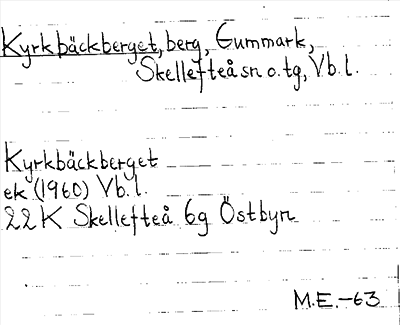 Kyrkbäckberget, berg, Gummark,
Skellefteå sn o. tg, Vb. l.
Kyrkbäckberget
ek (1960) Vb. l.
22 K Skellefteå 6g Östbyn
M.E.-63